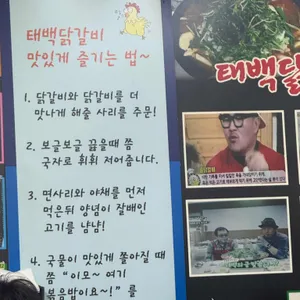 태백닭갈비
맛있게 즐기는 법~
1. 닭갈비와 닭갈비를 더
맛나게 해줄 사리를 주문!
2. 보글보글 끓을때 쯤
국자로 휘휘 저어줍니다.
3. 면사리와 야채를 먼저
먹은뒤 양념이 잘배인
고기를 냠냠!
4. 국물이 맛있게 쫄아질 때
쯤 "이모~ 여기
볶음밥이요~!" 를
태백닭